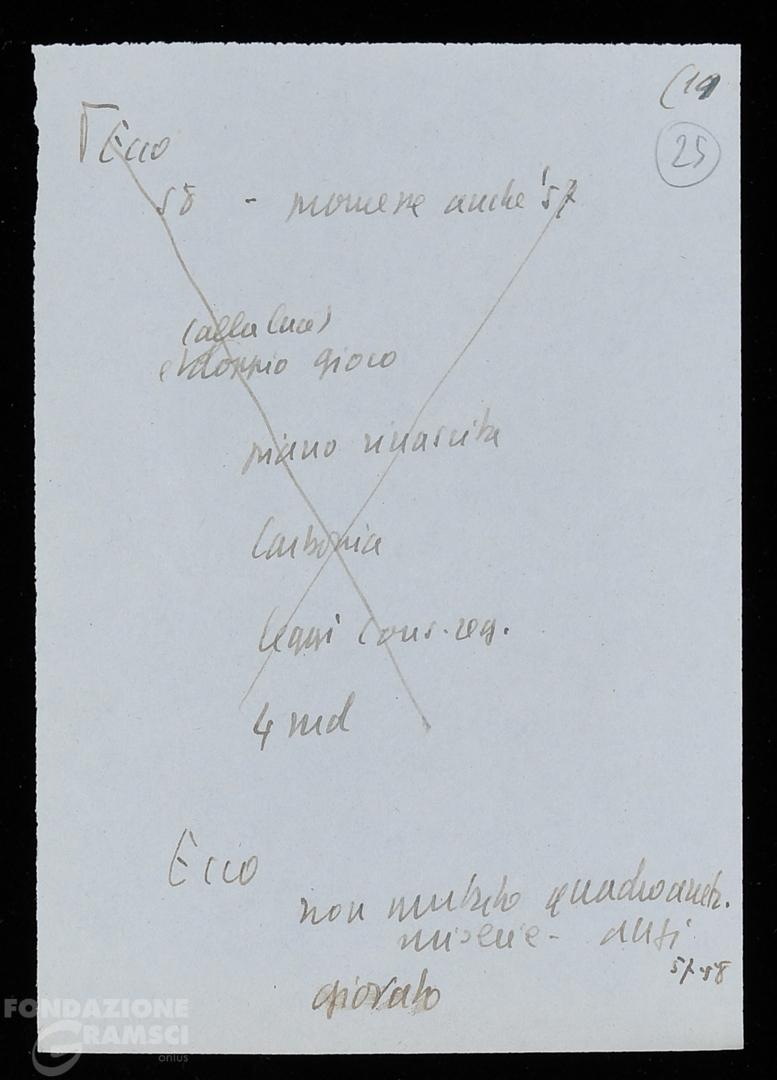 (19
25
Ecco
58 - promesse anche '57
(alla luce)
doppio gioco
piano rinascita
Carbonia
leggi cons. reg.
4 md
Ecco
non mutato quadro
miserie - anzi
57-58
giovato
FONDAZIONE
GRAMSCI
onlus